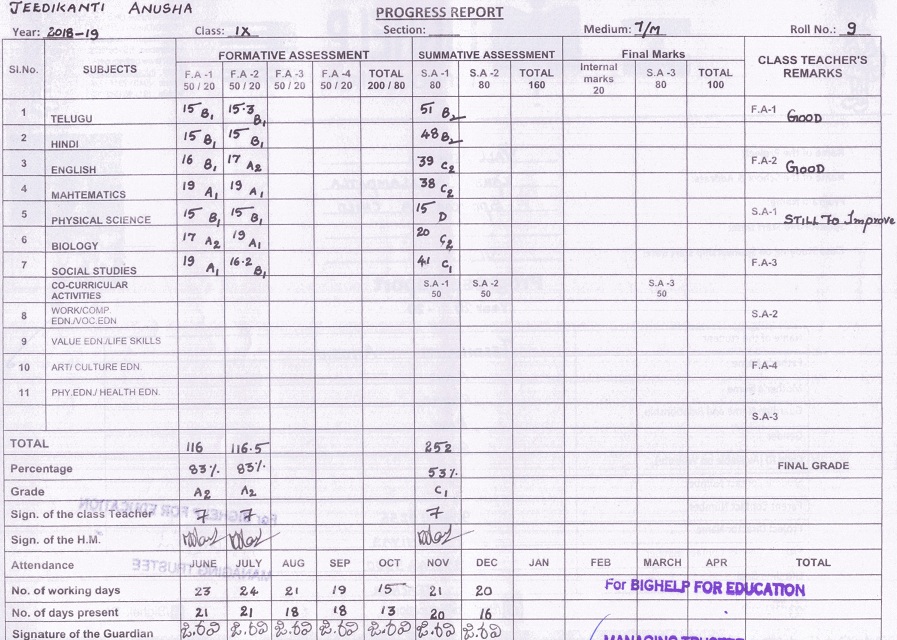 JEEDIKANTI ANUSHA
PROGRESS REPORT
Year: 2018-19 Class: IX Section: Medium: T/M Roll No.: 9
Sl.No. SUBJECTS FORMATIVE ASSESSMENT SUMMATIVE ASSESSMENT Final Marks CLASS TEACHER'S REMARKS
F.A -1 50 / 20 F.A -2 50 / 20 F.A -3 50 / 20 F.A -4 50 / 20 TOTAL 200 / 80 S.A -1 80 S.A -2 80 TOTAL 160 Internal marks 20 S.A -3 80 TOTAL 100
1 TELUGU 15 B1 15.3 B1 51 B2 F.A-1 GOOD
2 HINDI 15 B1 15 B1 48 B2
3 ENGLISH 16 B1 17 A2 39 C2 F.A-2 GOOD
4 MAHTEMATICS 19 A1 19 A1 38 C2
5 PHYSICAL SCIENCE 15 B1 15 B1 15 D S.A-1 STILL To Improve
6 BIOLOGY 17 A2 19 A1 20 C2
7 SOCIAL STUDIES 19 A1 16.2 B1 41 C1 F.A-3
CO-CURRICULAR ACTIVITIES S.A -1 50 S.A -2 50 S.A -3 50
8 WORK/COMP. EDN./VOC.EDN S.A-2
9 VALUE EDN./LIFE SKILLS
10 ART/ CULTURE EDN. F.A-4
11 PHY.EDN./ HEALTH EDN.
S.A-3
TOTAL 116 116.5 252
Percentage 83% 83% 53% FINAL GRADE
Grade A2 A2 C1
Sign. of the class Teacher
Sign. of the H.M.
Attendance JUNE JULY AUG SEP OCT NOV DEC JAN FEB MARCH APR TOTAL
No. of working days 23 24 21 19 15 21 20 For BIGHELP FOR EDUCATION
No. of days present 21 21 18 18 13 20 16
Signature of the Guardian MANAGING TRUSTEE